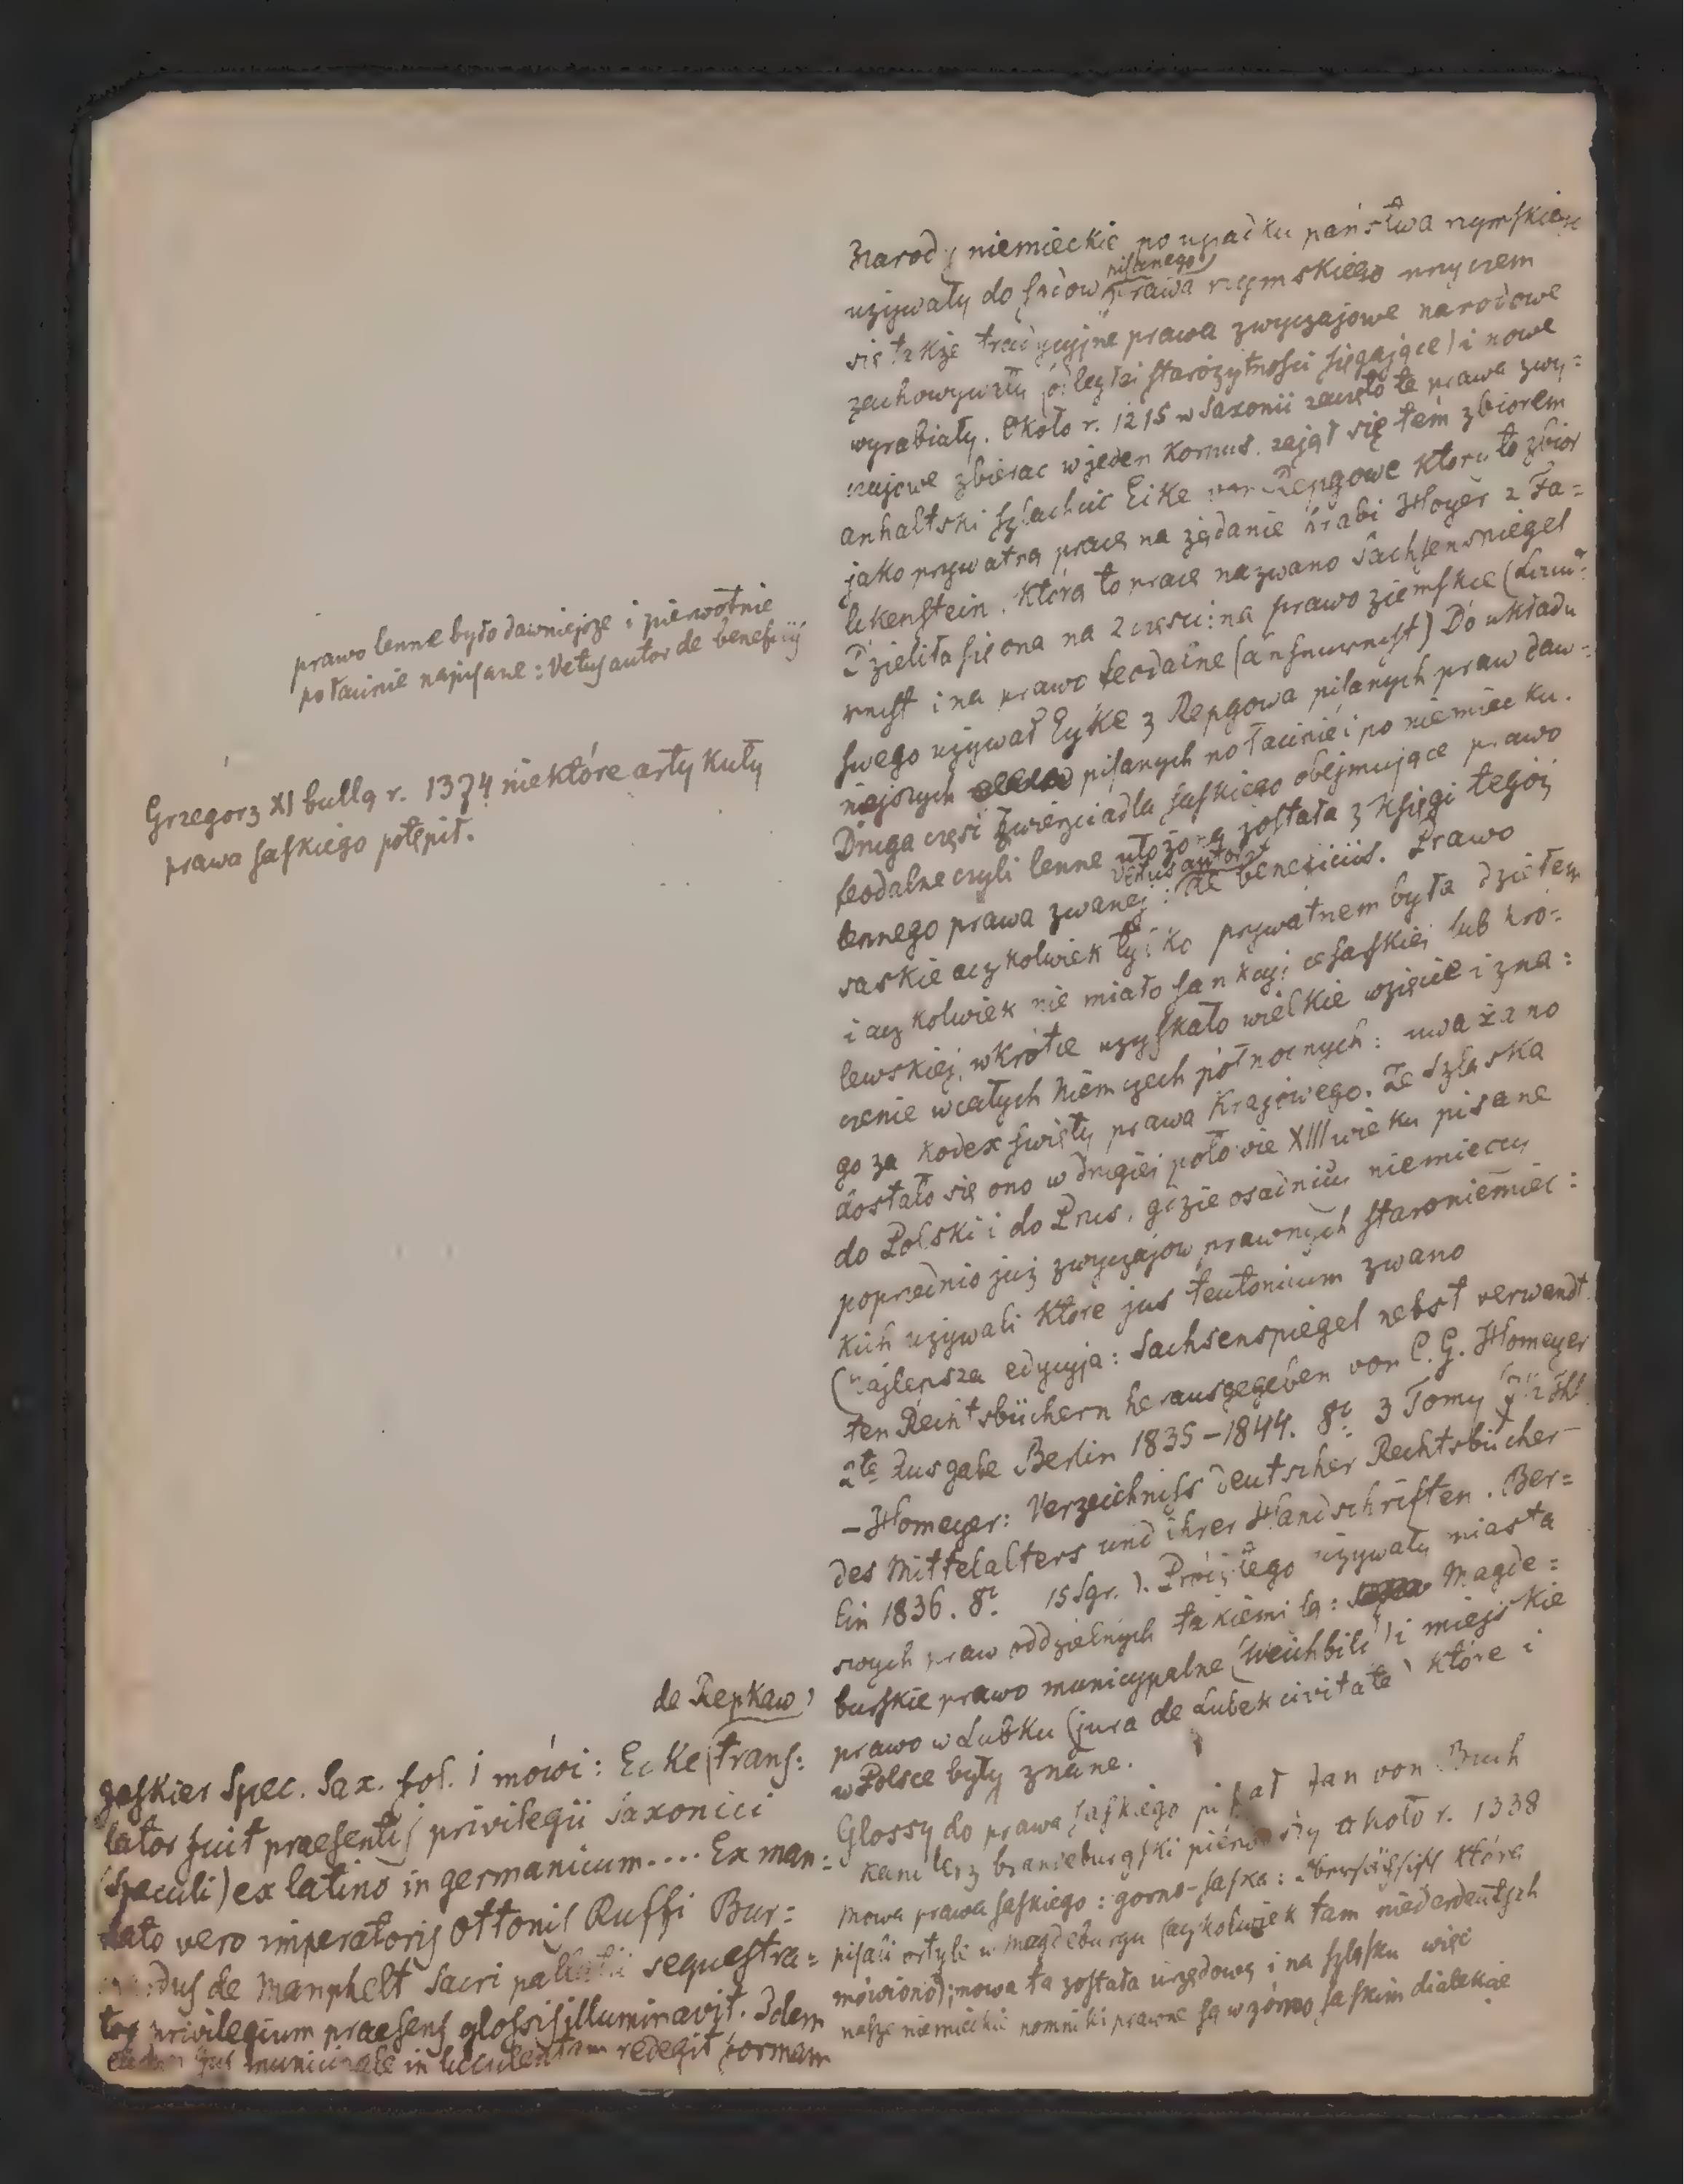 Narody niemieckie po upadku państwa rzymskiego
używały do sądów prawa rzymskiego przyczem
pisanego
się także tradycyjne prawa zwyczajowe narodowe
zachowywały (odległej starożytności sięgające) i nowe
wyrabiały. Około r. 1215 w Saxonii zaczęto te prawa zwy:
czajowe zbierac w jeden Korpus. zajął się tém zbiorem
anhaltski szlachcic Eike von Repgowe który to zbior
jako prywatną pracę na żądanie hrabi Hoyer z Fa=
lkenstein. Którą to pracę nazwano Sachsenspiegel
Dzieliła się ona na 2 części: na prawo ziemskie (Land=
recht i na prawo feodalne (Lehnrecht) Do układu
swego używał Eyke z Repgowa pisanych praw daw=
niejszych pisanych po łacinie i po niemiecku.
Druga część Zwierciadła saskiego obejmujące prawo
feodalne czyli lenne ułożoną została z Księgi tegoż
vetus autor
lennego prawa zwanej: de beneficiis. Prawo
saskie aczkolwiek tylko prywatnem była dziełem
i aczkolwiek nie miało sankcyi cesarskiej lub kró=
lewskiej, wkrótce uzyskało wielkie wzięcie i zna:
czenie w całych Niemczech północnych: uważano
go za kodex święty prawa Krajowego. Ze Szląska
dostało się ono w drugiej połowie XIII wieku pisane
do Polski i do Prus, gdzie osadnicy niemieccy
poprzednio już zwyczajow prawnych staroniemiec:
kich używali które jus teutonicum zwano
(Najlepsza edycyja: Sachsenspiegel nebst verwandt
ten Rechtsbüchern herausgegeben von C. G. Homeyer
2te Ausgabe Berlin 1835-1844. 8º 3 Tomy
- Homeyer: Verzeichniss deutscher Rechtsbücher
des Mittelalters und ihrer Handschriften. Ber=
lin 1836. 8º 15 Sgr.). Prócz tego używały miasta
swych praw oddzielnych takiemi są: Magde=
burskie prawo municypalne (Weichbild) i miejskie
prawo w Lubku (jura de Lubek civitate) które i
w Polsce były znane.
Glossy do prawa saskiego pisał Jan von Buch
kanclerz brandeburgski pierwszy około r. 1338
Mowa prawa saskiego: gorno-saska: obersächsisch którą
pisali ortyle w Magdeburgu (aczkolwiek tam niederdeutsch
mówiono); mowa ta została urzędową i na Szląsku więc
nasze niemieckie pomniki prawne są w górno saskim dialekcie
prawo lenne było dawniejsze i pierwotnie
po łacinie napisane: Vetus autor de beneficijs
Grzegorz XI bullą r. 1374 niektóre artykuły
prawa saskiego potępił.
de Repkaw
Jaskier Spec. Sax. fol. 1 mówi: Ecke trans:
lator fuit praesentis privilegii Saxonici
(Speculi) ex latino in germanicum.... Ex man:
dato vero imperatoris Ottonis Ruffi Bur=
de Manphelt Sacri pallatii sequestra=
tor privilegium praesens glossis illuminavit. Idem
jus municipale in luculentam redegit formam